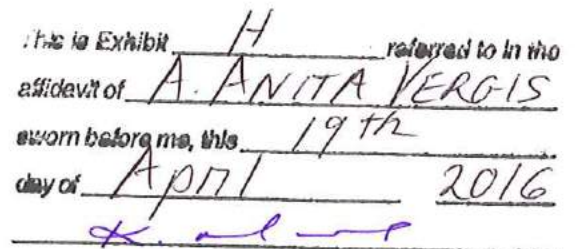 This is Exhibit H referred to in the
affidavit of A. ANITA VERGIS
sworn before me, this 19th
day of April 2016